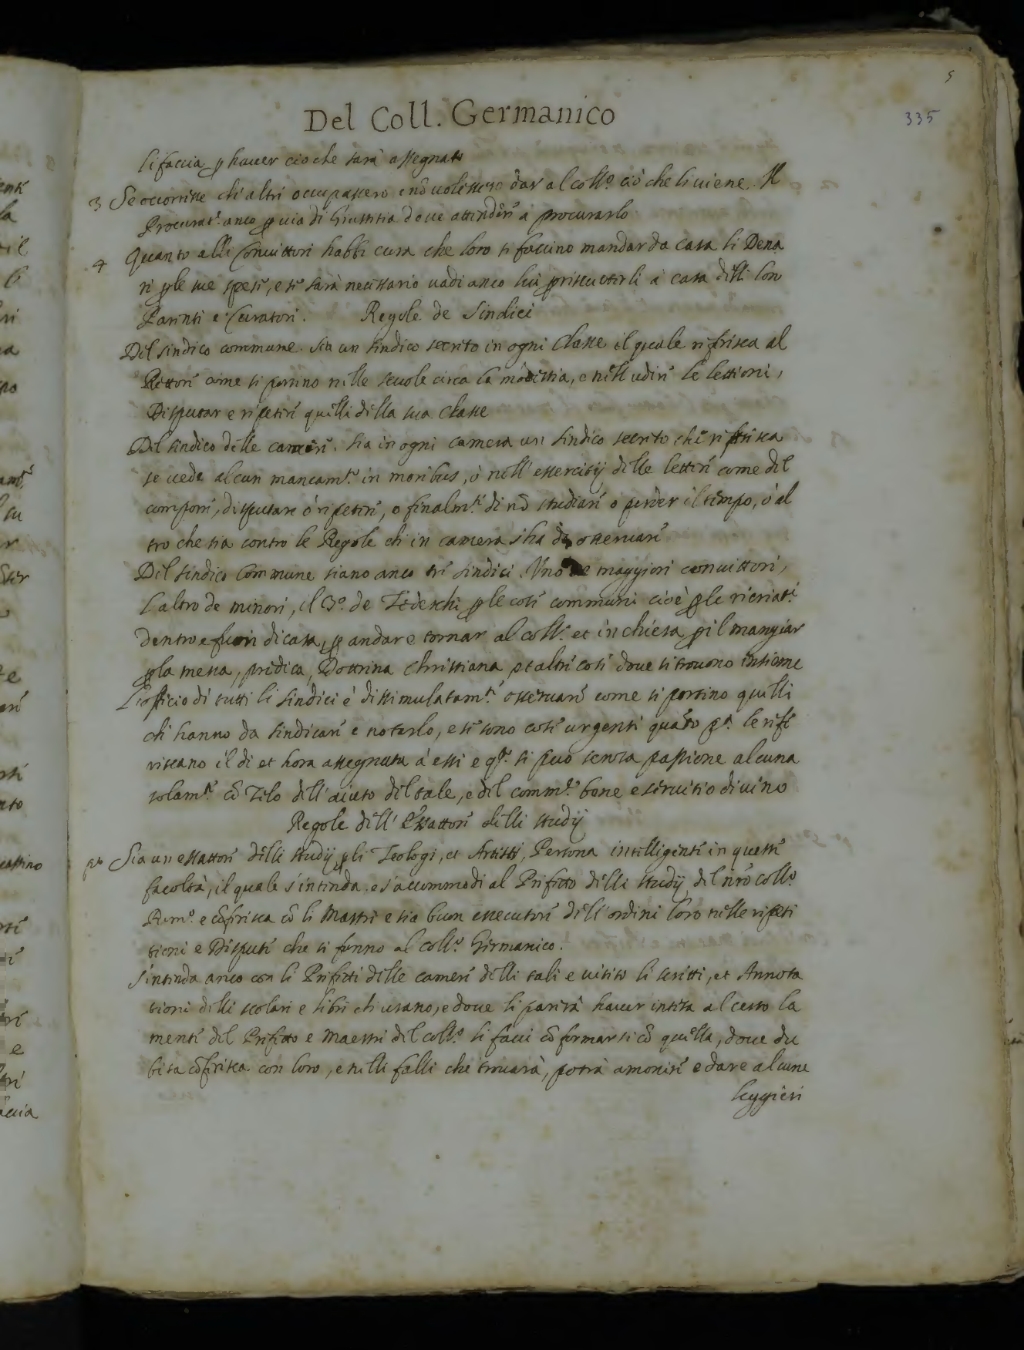 5
335
Del Coll. Germanico
si faccia ꝑ hauer cio che sarà assegnato
3 Se occorrisse ch'altri occupassero, e nō volessero dar al coll.º ciò che li viene. Il
Procurat.ʳ anco ꝑ via di Giustitia deue attender à procurarlo
4 Quanto alli Conuittori habbi cura che loro si faccino mandar da casa li Dena
ri ꝑ le sue spese, e se sarà necessario vadi anco lui à casa delli loro
Parenti e Curatori. Regole de Sindici
Del sindico commune. Sia un sindico secreto in ogni Classe il quale riferisca al
Rettore come si portino nelle scuole circa la modestia, e nell'udire le lettioni,
Disputar e ripetere quelli della sua classe
Del sindico delle camere. Sia in ogni camera un sindico secreto che riferisca
se vede alcun mancam.ᵗᵒ in moribus, ò nell'essercitij delle lettere come del
comporre, disputare ò ripetere, o finalm.ᵗᵉ di nō studiare o perder il tempo, ò al
tro che sia contro le Regole ch'in camera s'ha da osseruare
Del sindico Commune siano anco tre sindici. Uno de maggiori conuittori,
L'altro de minori, il 3º de Tedeschi ꝑ le cose communi cioè ꝑ le ricreat.ⁱ
dentro e fuori di casa, ꝑ andar e tornar al coll.º et in chiesa ꝑ il mangiar
ꝑ la messa, predica, Dottrina christiana, et altre cose doue si trouono insieme
L'officio di tutti li sindici è dissimulatam.ᵗᵉ osseruare come si portino quelli
ch'hanno da sindicare e notarlo, e se sono cose urgenti quāto p.ª le rife
riscano il di et hora assegnata à essi e q.ᵗᵒ si può senza passione alcuna
solam.ᵗᵉ cō zelo dell'aiuto del tale, e del comm.ᵉ bene e seruitio diuino
Regole dell'Essattore delli studij
p.ª Sia un essattore delli studij, ꝑ li Teologi, et Artisti, Persona intelligente in queste
facoltà, il quale s'intenda e s'accommodi al Prefetto delli studij del nrō coll.º
Rom.º e cōferisca cō li Mastri e sia buon essecutore dell'ordini loro nelle ripeti
tioni e Dispute che si fanno al coll.º Germanico.
S'intenda anco con li Prefetti delle camere delli tali e visiti li scritti, et Annota
tioni delli scolari e libri ch'usano, e doue li parerà hauer intesa al certo la
mente del Prefetto e Maestri del coll.º si facci cōformarsi cō quella, doue du
bita cōferisca con loro, e nelli falli che trouarà, potrà amonire e dare alcune
leggieri